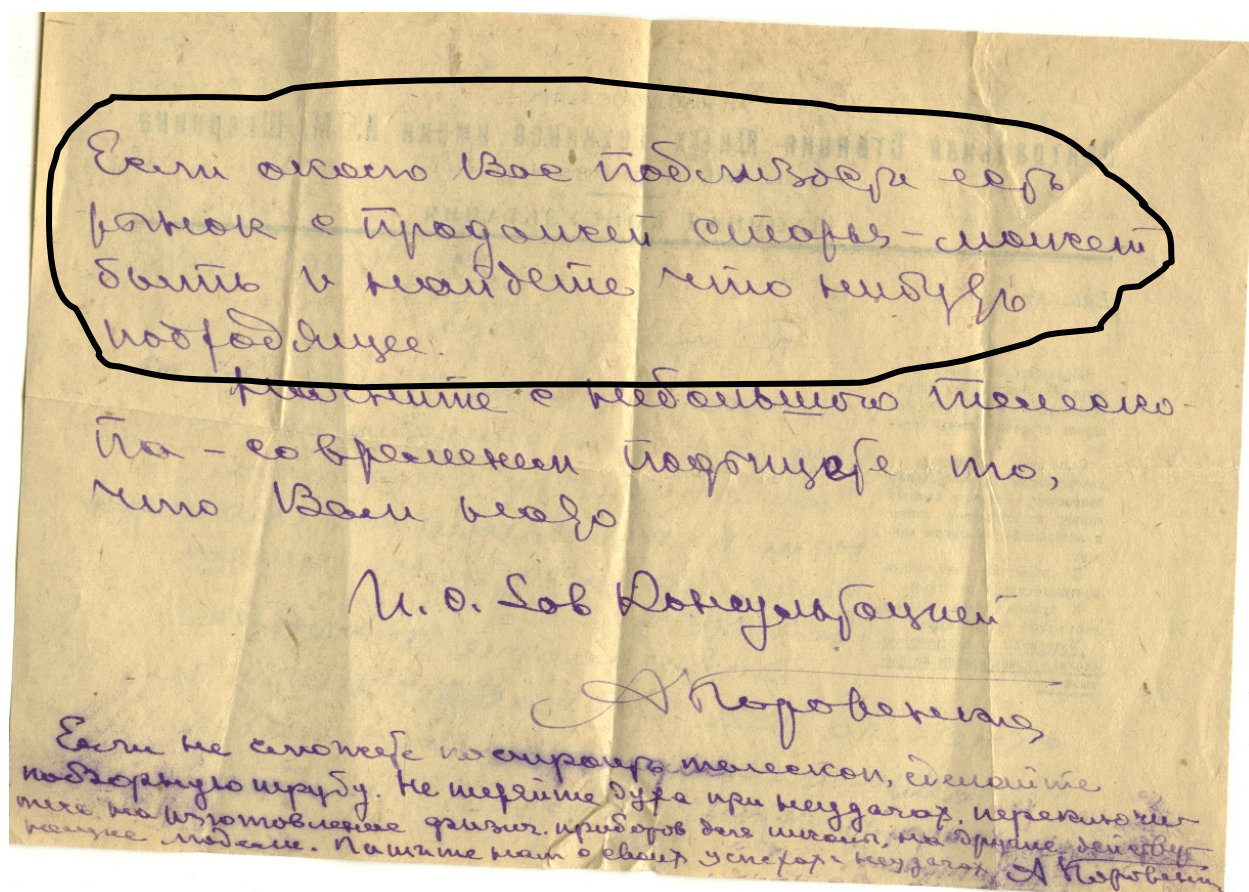 Если около Вас поблизости есть
рынок с продажей старья - может
быть и найдете что нибудь
подходящее.
Начните с небольшого телеско-
па - со временем подыщете то,
что Вам надо
И. о. Зав Консультацией
Если не сможете построить телескоп, сделайте
подзорную трубу. Не теряйте духа при неудачах, переключи-
тесь на изготовление физич. приборов для школы, на другие действую-
щие модели. Пишите нам о своих успехах и неудачах